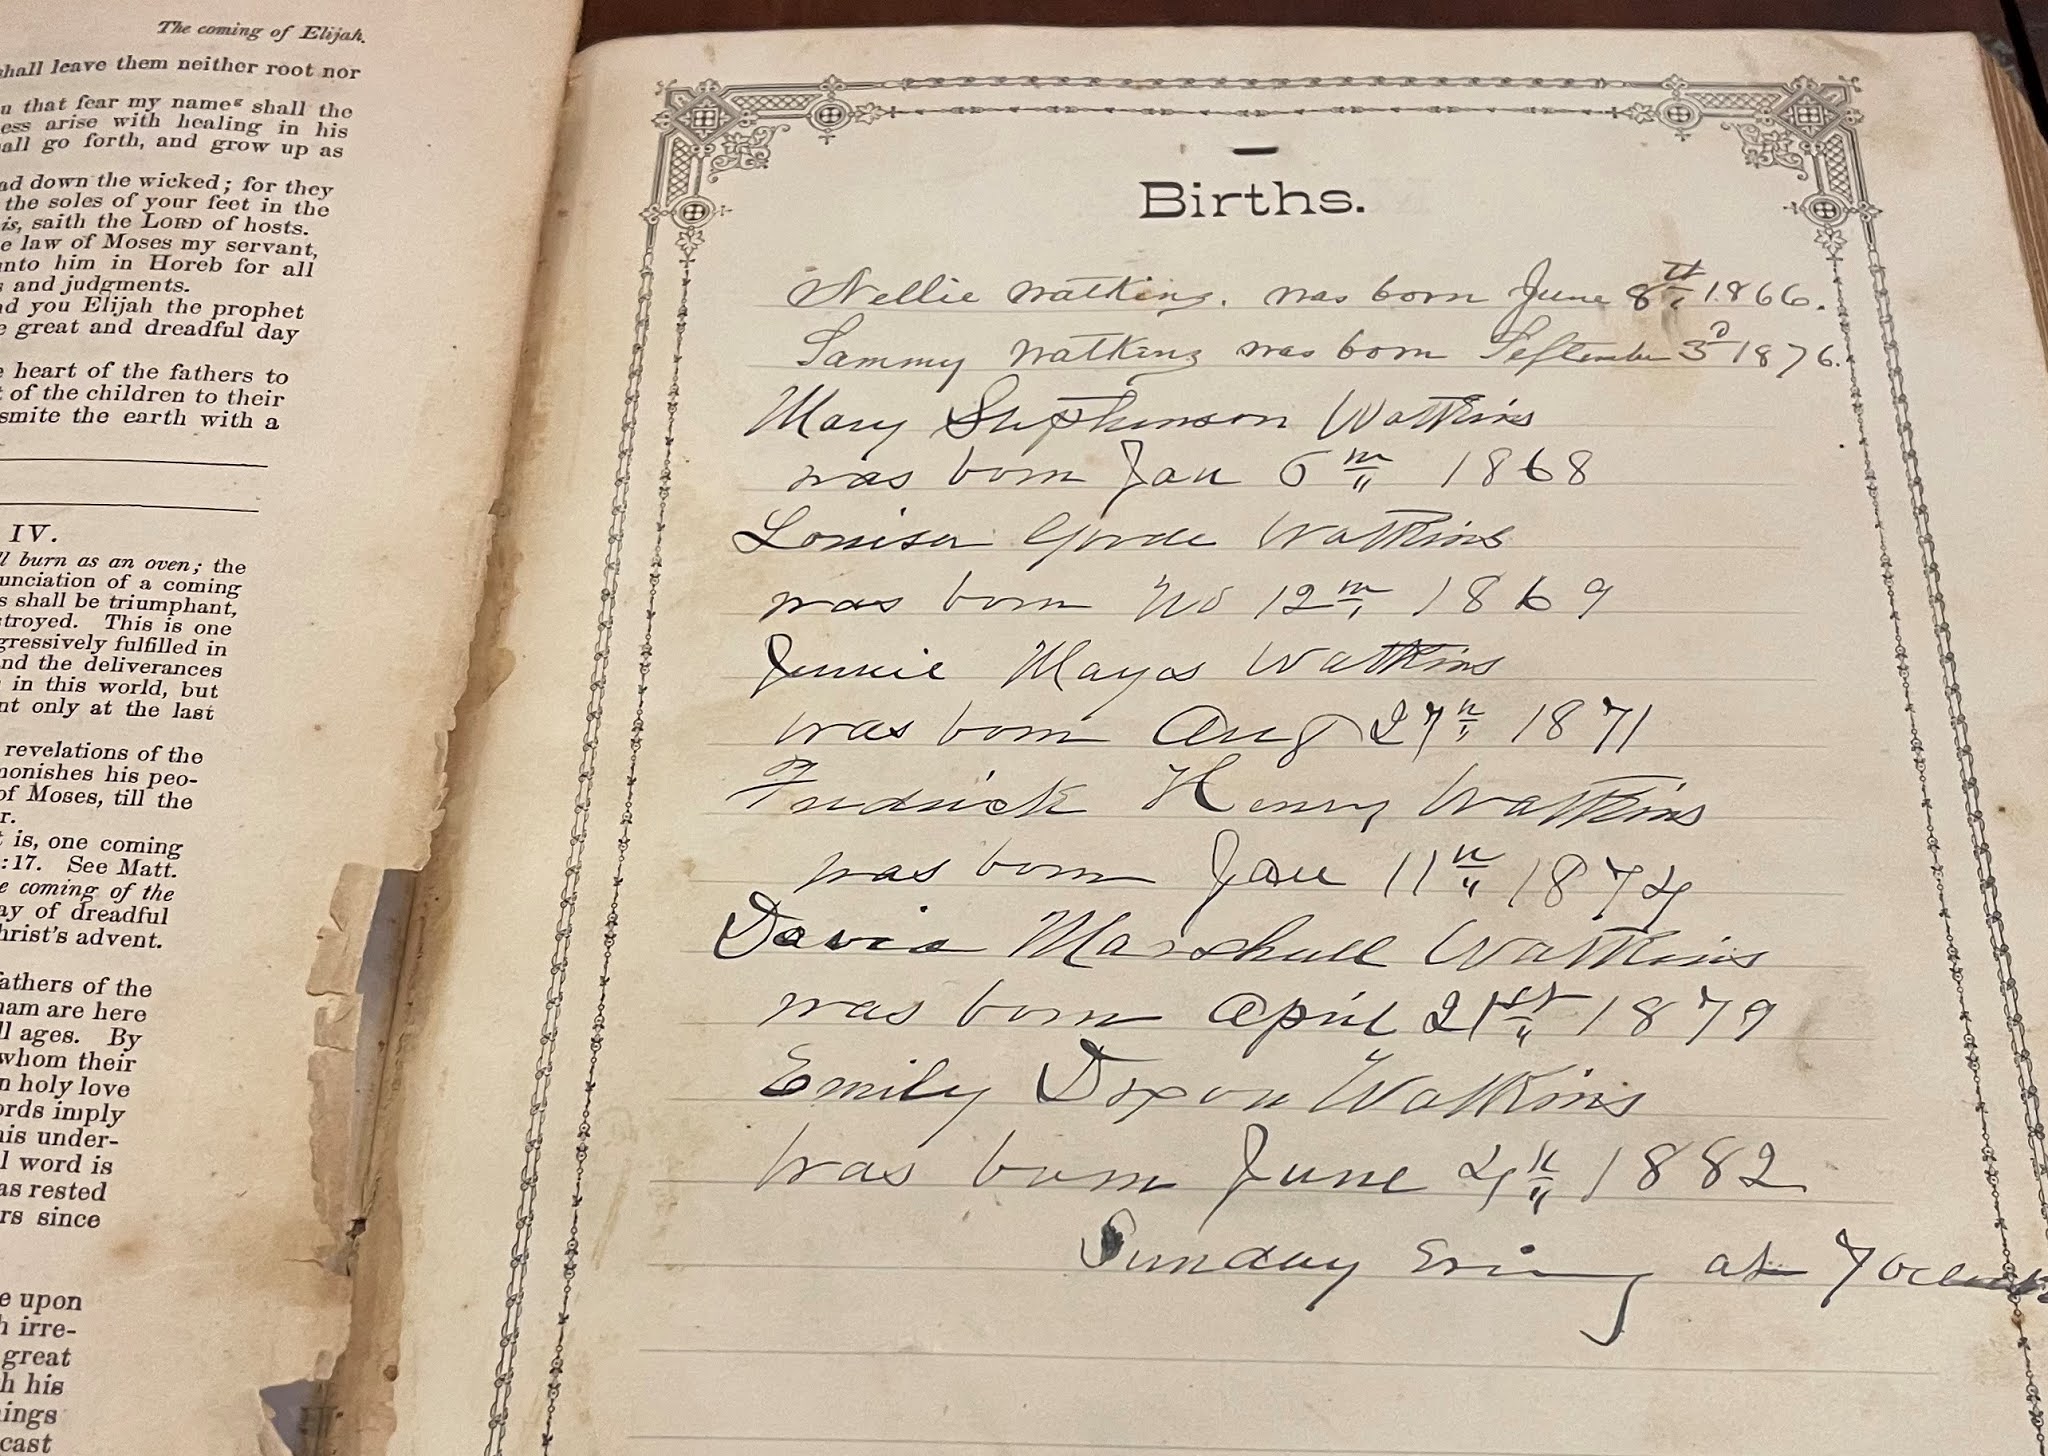 The coming of Elijah.
shall leave them neither root nor
u that fear my name shall the
ess arise with healing in his
all go forth, and grow up as
ad down the wicked; for they
the soles of your feet in the
is, saith the LORD of hosts.
e law of Moses my servant,
unto him in Horeb for all
s and judgments.
nd you Elijah the prophet
e great and dreadful day
e heart of the fathers to
t of the children to their
smite the earth with a
IV.
ll burn as an oven; the
unciation of a coming
s shall be triumphant,
stroyed. This is one
gressively fulfilled in
and the deliverances
in this world, but
nt only at the last
revelations of the
monishes his peo-
of Moses, till the
r.
t is, one coming
:17. See Matt.
e coming of the
ay of dreadful
hrist's advent.
athers of the
ham are here
ll ages. By
whom their
n holy love
ords imply
his under-
l word is
as rested
rs since
e upon
h irre-
great
h his
ings
cast
Births.
Nellie Watkins. was born June 8th 1866.
Sammy Watkins was born September 3d 1876.
Mary Stephenson Watkins
was born Jan 6th 1868
Louisa Watkins
was born No 12th 1869
Jennie Mayos Watkins
was born Aug 27th 1871
Fredrick Henry Watkins
was born Jan 11th 1874
Davis Marshall Watkins
was born April 21st 1879
Emily Dixon Watkins
was born June 4th 1882
Sunday Evning at 7